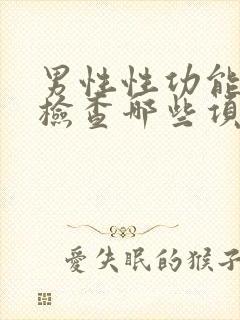 男性性功能
檢查哪些項
愛失眠的猴子